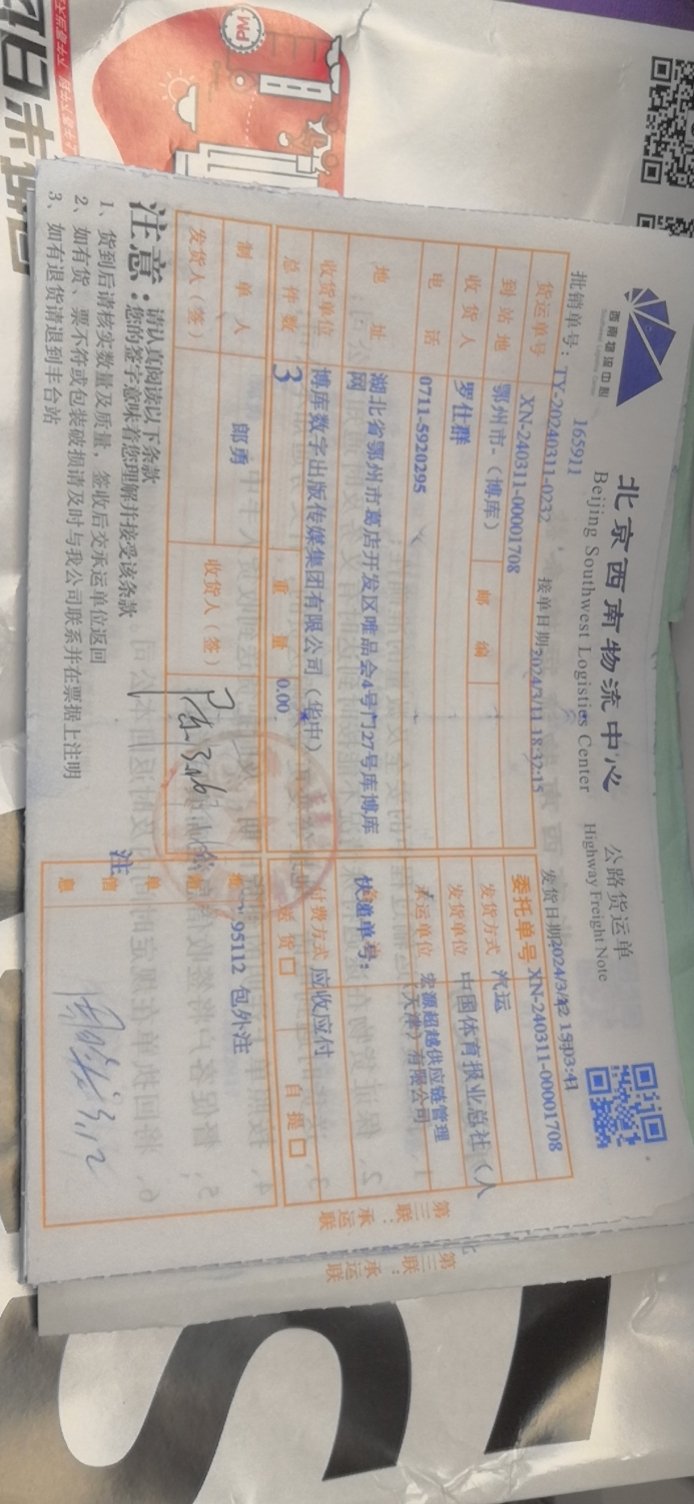 西南物流中心
北京西南物流中心
Beijing Southwest Logistics Center
公路货运单
Highway Freight Note
165911
批销单号：TY-20240311-0232
接单日期2024/3/11 18:32:15
发货日期2024/3/12 15:03:41
货运单号 XN-240311-00001708
委托单号 XN-240311-00001708
到站地 鄂州市-（博库）
邮编
发货方式 汽运
收货人 罗仕群
发货单位 中国体育报业总社（人
电话 0711-5920295
承运单位 宏源超越供应链管理（天津）有限公司
地址 湖北省鄂州市葛店开发区唯品会4号门27号库博库网
快递单号：
收货单位 博库数字出版传媒集团有限公司（华中）
付费方式 应收应付
总件数 3
重量 0.00
送货 自提
制单人 郎勇
95112 包外注
发货人（签）
收货人（签）
注意：
请认真阅读以下条款
您的签字意味着您理解并接受该条款
1、货到后请核实数量及质量，签收后交承运单位返回
2、如有货、票不符或包装破损请及时与我公司联系并在票据上注明
3、如有退货请退到丰台站
第三联：承运联
第三联：承运联
PM